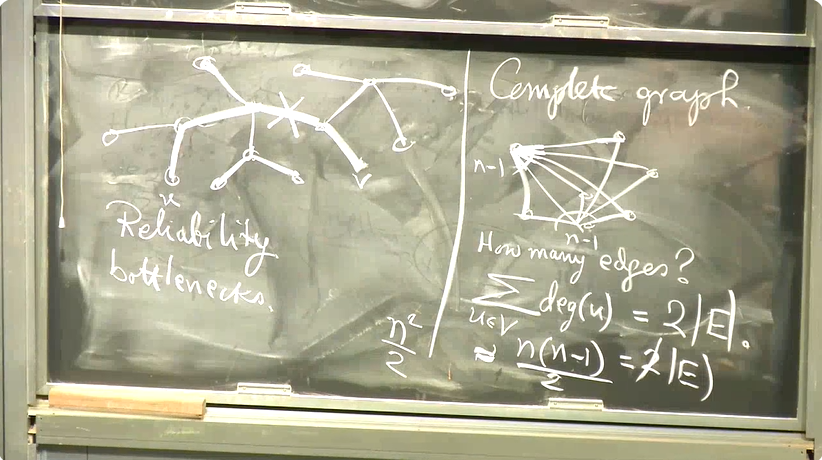 u
v
Reliability
bottlenecks.
n²/2
Complete graph.
n-1
n-1
How many edges?
∑ deg(u) = 2|E|.
u∈V
≈ n(n-1)/2 = 2|E|